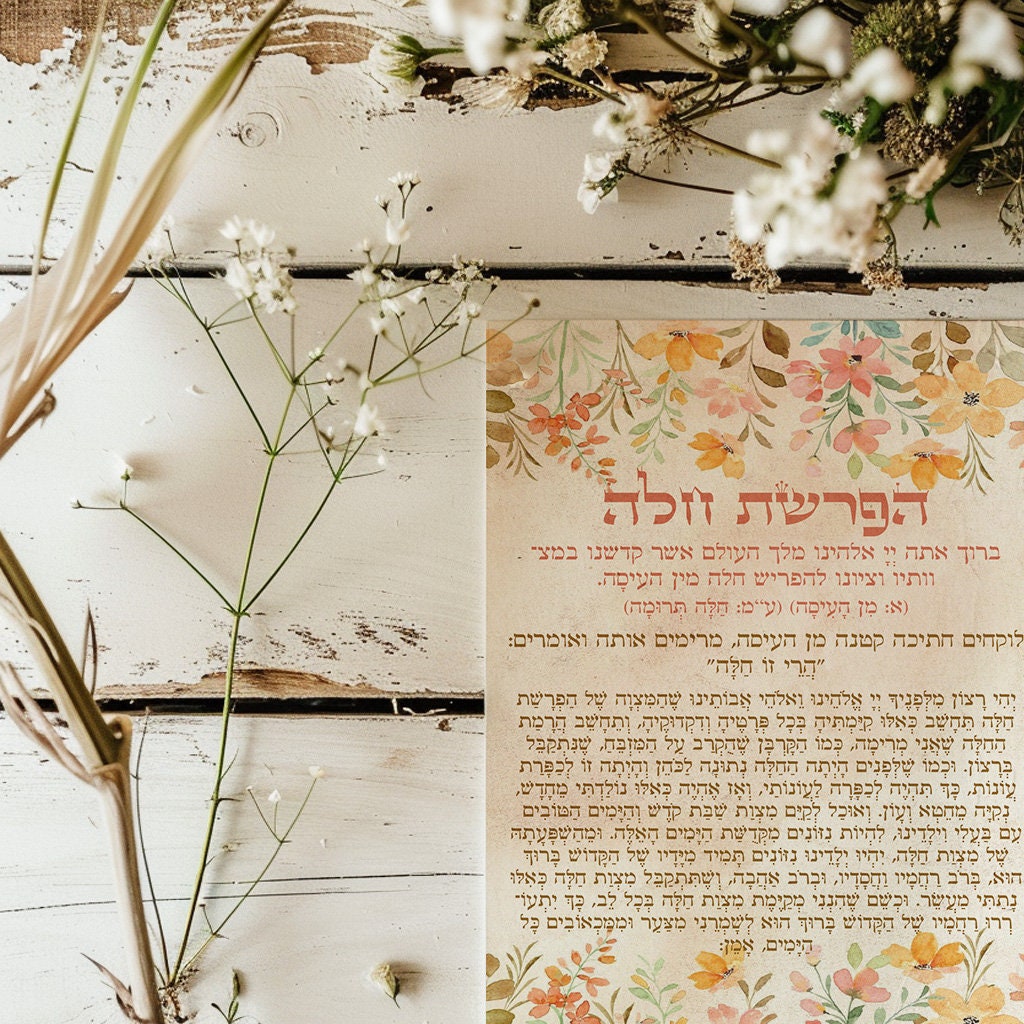 הפרשת חלה
ברוך אתה יְיָ אלהינו מלך העולם אשר קדשנו במצ־
וותיו וציונו להפריש חלה מין העיסָה.
(א: מִן הָעִיסָה) (ע״מ: חַלָּה תְּרוּמָה)
לוקחים חתיכה קטנה מן העיסה, מרימים אותה ואומרים:
״הֲרֵי זוֹ חַלָּה״
יְהִי רָצוֹן מִלְּפָנֶיךָ יְיָ אֱלֹהֵינוּ וֵאלֹהֵי אֲבוֹתֵינוּ שֶׁהַמִּצְוָה שֶׁל הַפְרָשַׁת
חַלָּה תֵּחָשֵׁב כְּאִלּוּ קִיַּמְתִּיהָ בְּכָל פְּרָטֶיהָ וְדִקְדּוּקֶיהָ, וְתֵחָשֵׁב הֲרָמַת
הַחַלָּה שֶׁאֲנִי מְרִימָה, כְּמוֹ הַקָּרְבָּן שֶׁהֻקְרַב עַל הַמִּזְבֵּחַ, שֶׁנִּתְקַבֵּל
בְּרָצוֹן. וּכְמוֹ שֶׁלְּפָנִים הָיְתָה הַחַלָּה נְתוּנָה לַכֹּהֵן וְהָיְתָה זוֹ לְכַפָּרַת
עֲוֹנוֹת, כָּךְ תִּהְיֶה לְכַפָּרָה לַעֲוֹנוֹתַי, וְאָז אֶהְיֶה כְּאִלּוּ נוֹלַדְתִּי מֵחָדָשׁ,
נְקִיָּה מֵחֵטְא וְעָוֹן. וְאוּכַל לְקַיֵּם מִצְוַת שַׁבַּת קֹדֶשׁ וְהַיָּמִים הַטּוֹבִים
עִם בַּעְלִי וִילָדֵינוּ, לִהְיוֹת נִזּוֹנִים מִקְּדֻשַּׁת הַיָּמִים הָאֵלֶּה. וּמֵהַשְׁפָּעָתָהּ
שֶׁל מִצְוַת חַלָּה, יִהְיוּ יְלָדֵינוּ נִזּוֹנִים תָּמִיד מִיָּדָיו שֶׁל הַקָּדוֹשׁ בָּרוּךְ
הוּא, בְּרֹב רַחֲמָיו וַחֲסָדָיו, וּבְרֹב אַהֲבָה, וְשֶׁתִּתְקַבֵּל מִצְוַת חַלָּה כְּאִלּוּ
נָתַתִּי מַעֲשֵׂר. וּכְשֵׁם שֶׁהִנְנִי מְקַיֶּמֶת מִצְוַת חַלָּה בְּכָל לֵב, כָּךְ יִתְעוֹ־
רְרוּ רַחֲמָיו שֶׁל הַקָּדוֹשׁ בָּרוּךְ הוּא לְשָׁמְרֵנִי מִצַּעַר וּמִמַּכְאוֹבִים כָּל
הַיָּמִים, אָמֵן: